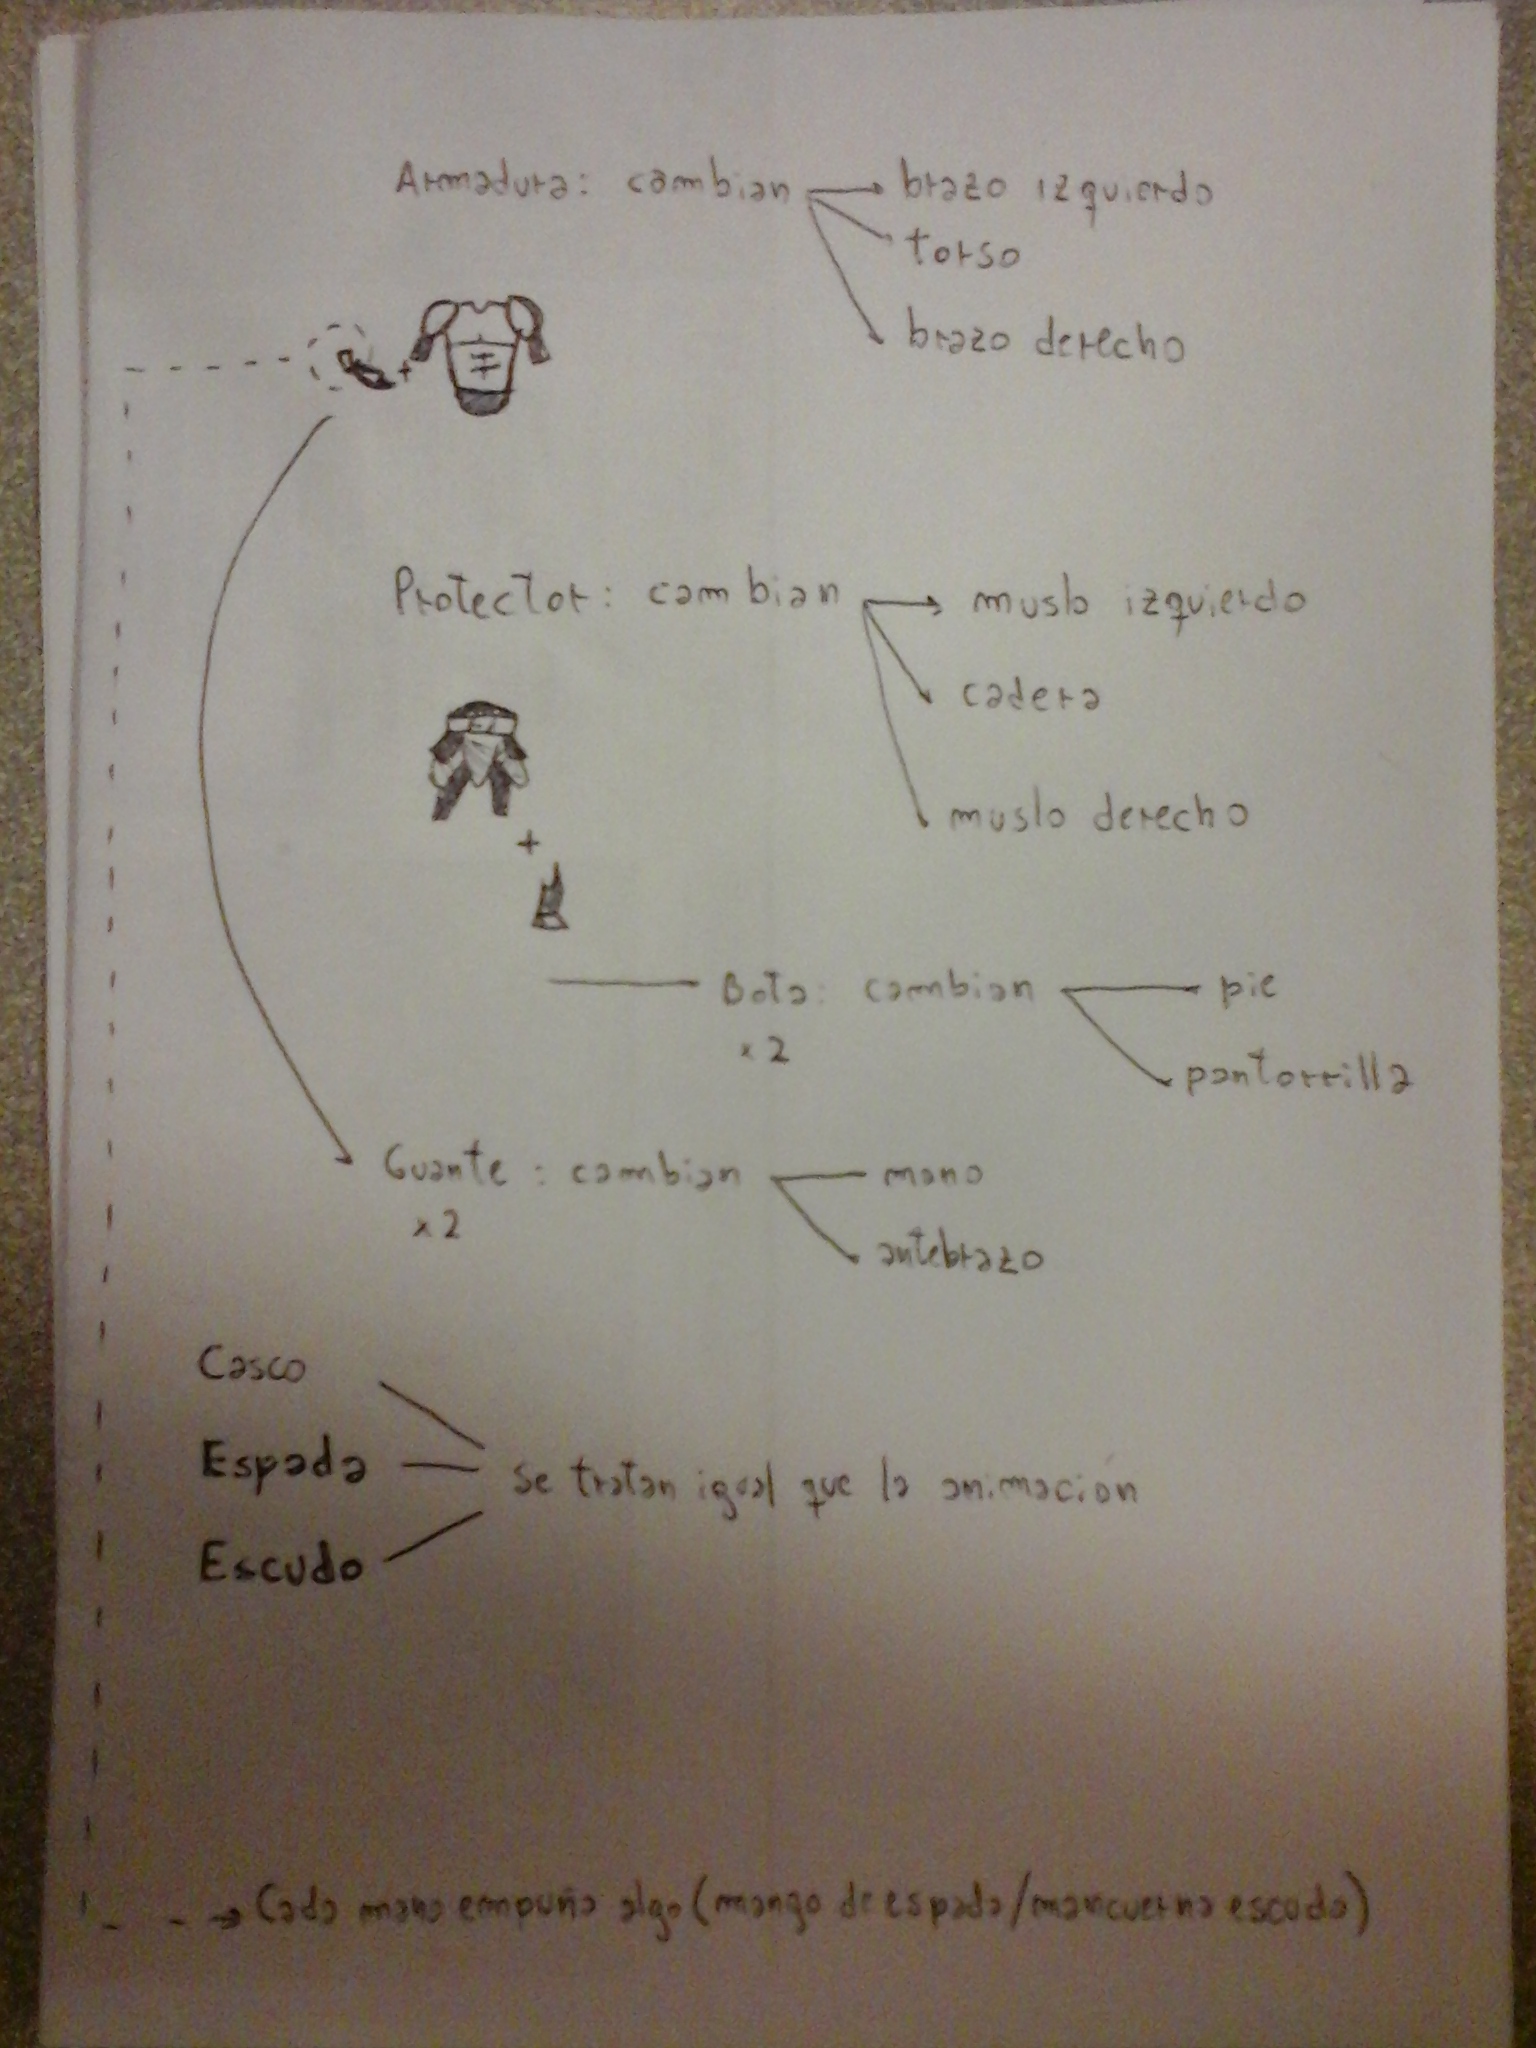 Armadura: cambian → brazo izquierdo
torso
brazo derecho
+
Protector: cambian → muslo izquierdo
cadera
muslo derecho
+
Bota: cambian pie
x 2
pantorrilla
Guante: cambian mano
x 2
antebrazo
Casco
Espada
se tratan igual que la animación
Escudo
Cada mano empuña algo (mango de espada/mancuerna escudo)